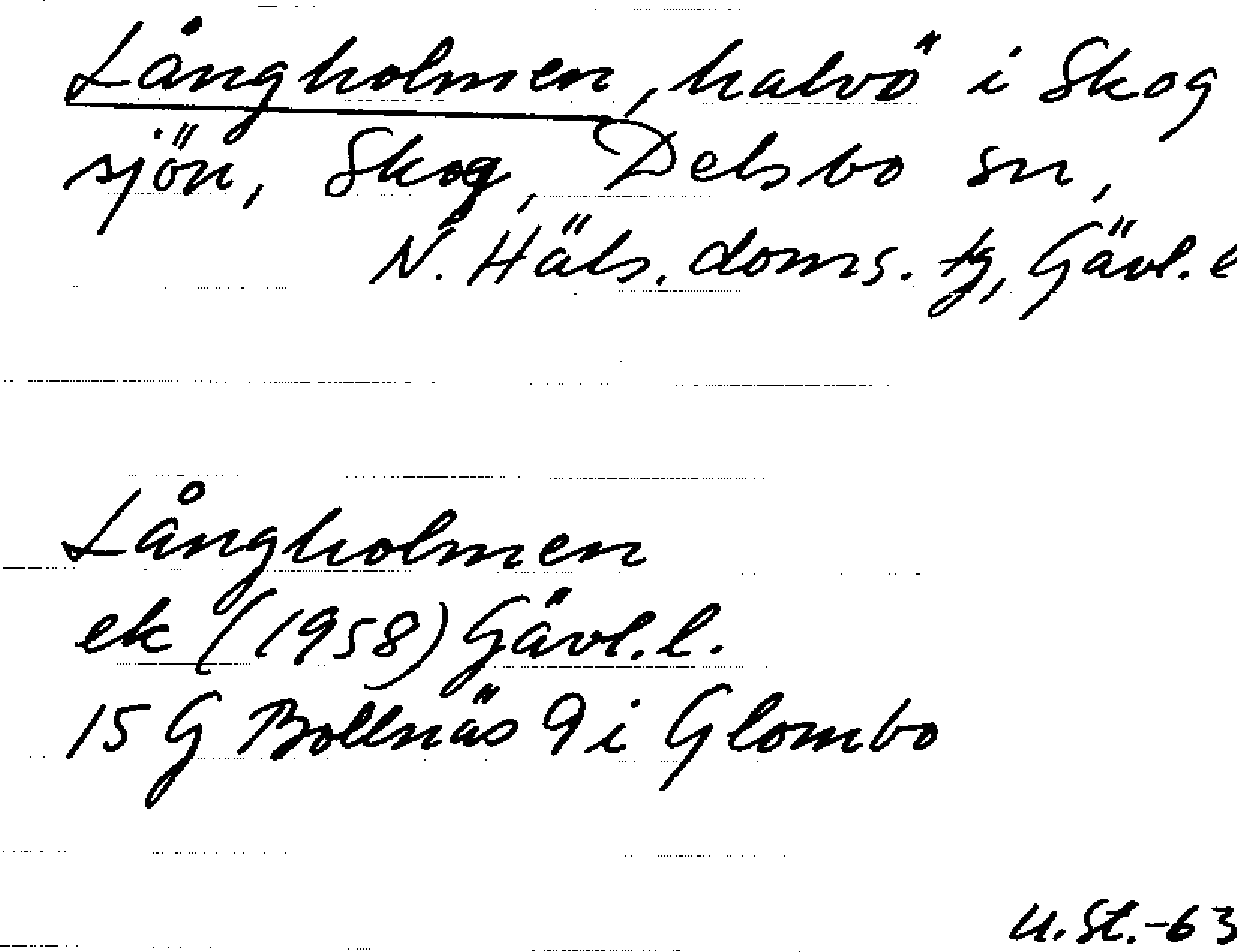 Långholmen, halvö i Skog
sjön, Skog, Delsbo sn,
N. Häls. doms. tg, Gävl. l
Långholmen
ek (1958) Gävl. l.
15 G Bollnäs 9 i Glombo
U. St. -63